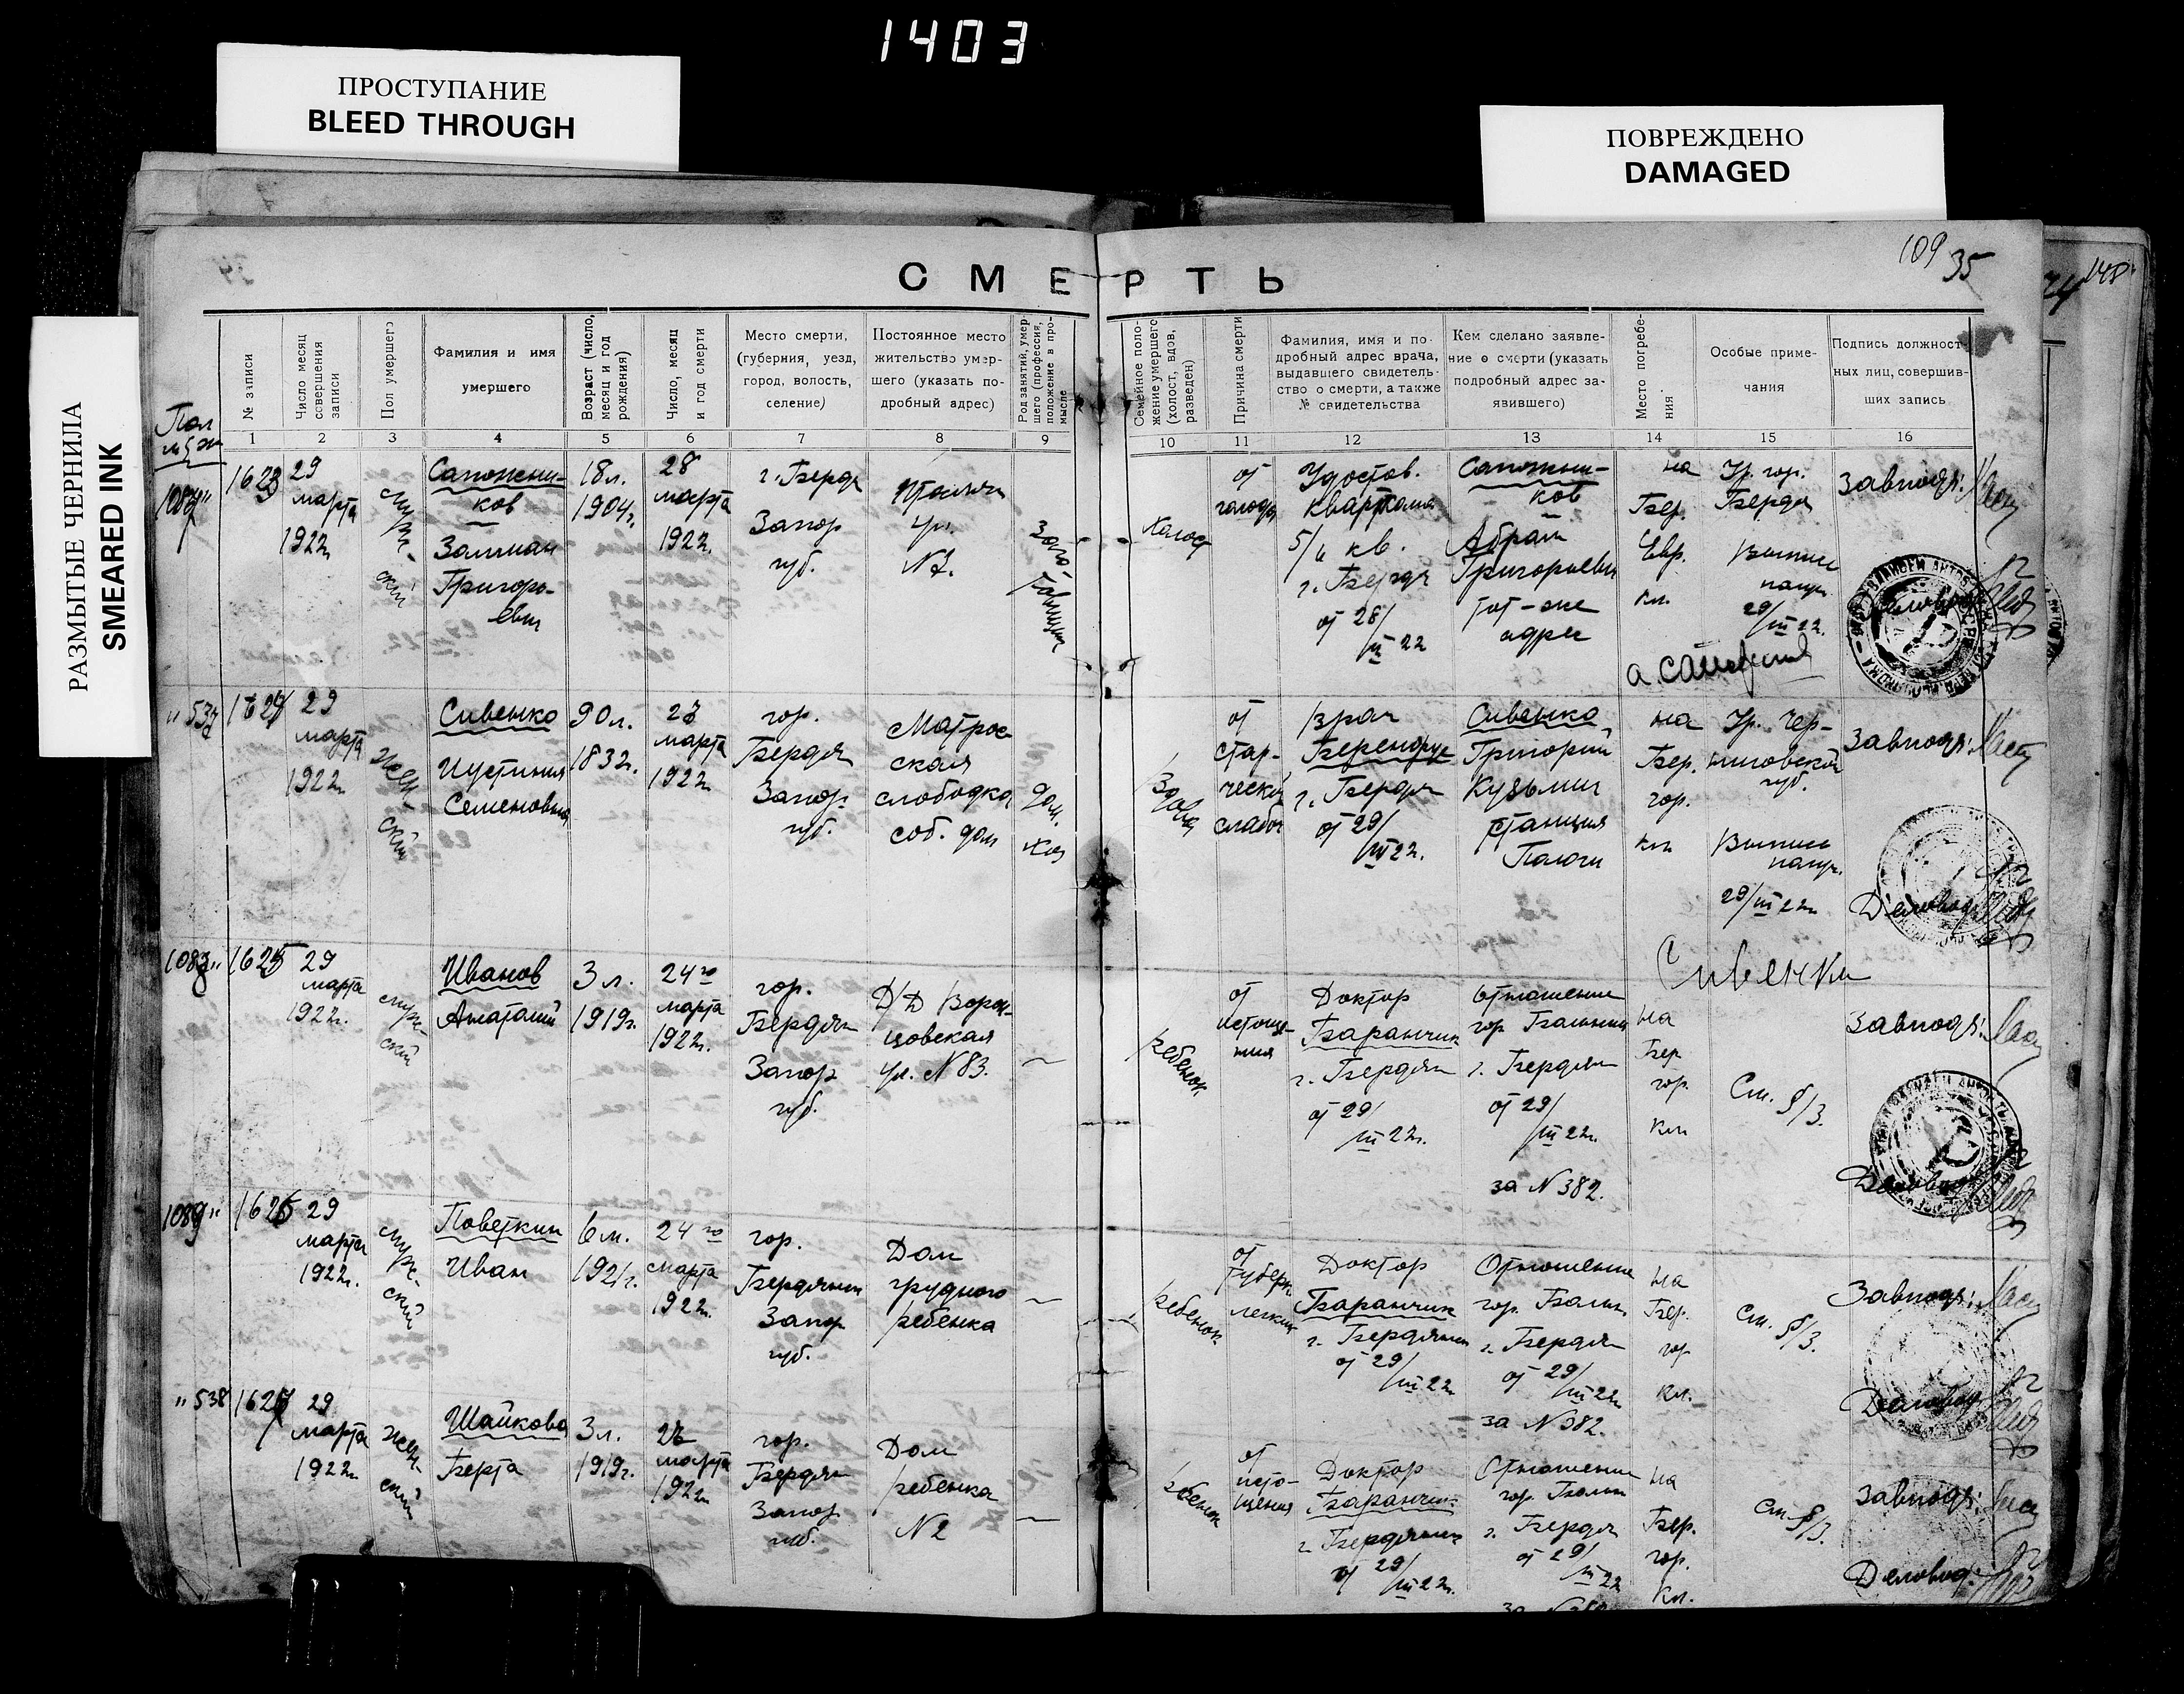 1403
ПРОСТУПАНИЕ
BLEED THROUGH
ПОВРЕЖДЕНО
DAMAGED
РАЗМЫТЫЕ ЧЕРНИЛА
SMEARED INK
109 35
СМЕРТЬ
№ записи
Число месяц совершения записи
Пол умершего
Фамилия и имя
умершего
Возраст (число, месяц и год рождения)
Число, месяц и год смерти
Место смерти,
(губерния, уезд,
город, волость,
селение)
Постоянное место
жительство умер-
шего (указать по-
дробный адрес)
Род занятий, умер-
шего (профессия,
положение в про-
мысле
Семейное поло-
жение умершего
(холост, вдов,
разведен)
Причина смерти
Фамилия, имя и по-
дробный адрес врача,
выдавшего свидетель-
ство о смерти, а также
№ свидетельства
Кем сделано заявле-
ние о смерти (указать
подробный адрес за-
явившего)
Место погребе-
ния
Особые приме-
чания
Подпись должност-
ных лиц, совершив-
ших запись
1 2 3 4 5 6 7 8 9 10 11 12 13 14 15 16
1623
29
марта
1922г.
муж-
ский
Сапожни-
ков
Залман
Григорь-
евич
18 л.
1904г.
28
марта
1922г.
г. Бердя
Запор
губ.
ул.
холост
от
голода
Удостов.
Кварткома
5/6 кв.
г. Бердя
от 28/
III 22
Сапожни-
ков
Абрам
Григорьевич
тот-же
адрес
на
Бер.
Евр.
кл.
Ур. гор.
Бердя
29/III 22.
Завподъ:
" 537
1624
29
марта
1922г.
жен-
ский
Сивенко
Иустиния
Семеновна
90 л.
1832г.
марта
1922г.
гор.
Бердян
Запор
губ.
Матрос
ская
слободка
соб. дом
дом.
хоз
вдова
от
стар-
ческой
слабос
врач
г. Бердян
от 29/
III 22.
Сивенко
Григорий
Кузьмич
станция
Пологи
на
Бер.
гор.
кл.
Ур. Чер-
ниговской
губ.
29/III 22г.
Завподъ:
Деловод:
Сивенко
1088 "
1625
29
марта
1922г.
муж-
ский
Иванов
Анатолий
3 л.
1919г.
24го
марта
1922г.
гор.
Бердян
Запор
губ.
Д/Д Ворон-
цовская
ул. N 83.
—
ребенок
от
истоще-
ния
Доктор
Баранчик
г. Бердян
от 29/
III 22г.
Отношение
гор Больниц
г. Бердян
от 29/
III 22г.
за N 382.
на
Бер
гор.
кл.
См. §/3.
Завподъ:
Деловод:
1089 "
1626
29
марта
1922г.
муж-
ский
Поветкин
Иван
6 м.
1921г.
24го
марта
1922г.
гор.
Бердянск
Запор
губ.
Дом
грудного
ребенка
—
ребенок
от
туберк.
легких
Доктор
Баранчик
г. Бердянск
от 29/
III 22г.
Отношение
гор. Больн.
г. Бердян
от 29/
III 22г.
за N 382.
на
Бер.
гор
кл.
См. §/3.
Завподъ:
Деловод:
" 538
1627
29
марта
1922г.
жен-
ский
Шайкова
Берта
3 л.
1919г.
марта
1922г.
гор.
Бердян
Запор
губ.
Дом
ребенка
N 2
—
ребенок
от
исто-
щения
Доктор
Баранчик
г. Бердянск
от 29/
III 22г.
Отношение
гор. Больн
г. Бердян
от 29/
III 22
на
Бер.
гор.
кл.
См. §/3.
Завподъ:
Деловод: